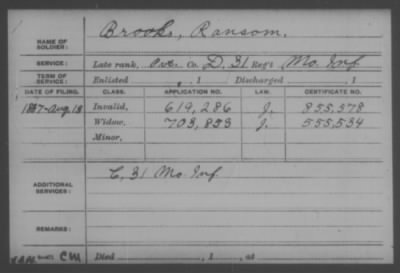 NAME OF SOLDIER: Brooks, Ransom.
SERVICE: Late rank, Co. D, 31 Reg't Mo. Inf.
TERM OF SERVICE: Enlisted , 1 Discharged , 1
DATE OF FILING. CLASS. APPLICATION NO. LAW. CERTIFICATE NO.
1887-Aug 18 Invalid, 619,286 J. 855,378
Widow, 703,853 J. 555,534
Minor,
ADDITIONAL SERVICES: C, 31 Mo. Inf.
REMARKS:
Died , 1 , at